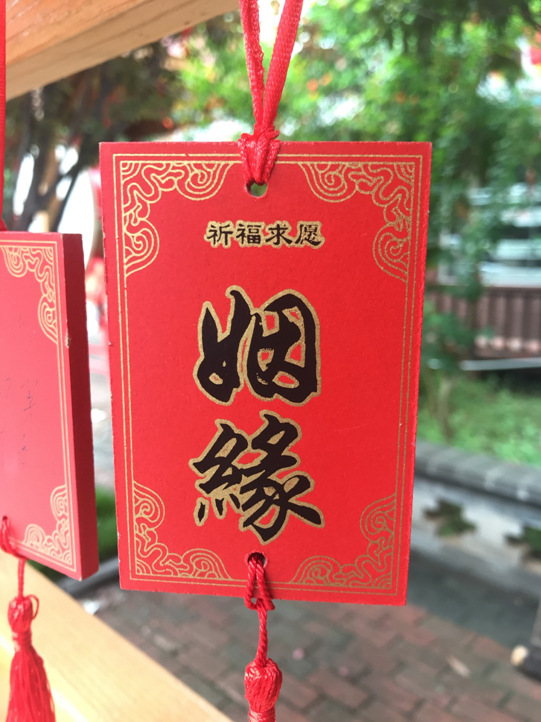 祈福求愿
姻
緣